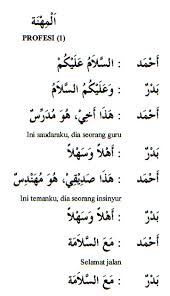 اَلْمِهْنَة
PROFESI (1)
أَحْمَد : السَّلاَمُ عَلَيْكُمْ
بَدْرٌ : وَعَلَيْكُمُ السَّلاَمُ
أَحْمَد : هَذَا أَخِيْ، هُوَ مُدَرِّسٌ
Ini saudaraku, dia seorang guru
بَدْرٌ : أَهْلاً وَسَهْلاً
أَحْمَد : هَذَا صَدِيْقِيْ، هُوَ مُهَنْدِسٌ
Ini temanku, dia seorang insinyur
بَدْرٌ : أَهْلاً وَسَهْلاً
أَحْمَد : مَعَ السَّلاَمَة
Selamat jalan
بَدْرٌ : مَعَ السَّلاَمَة